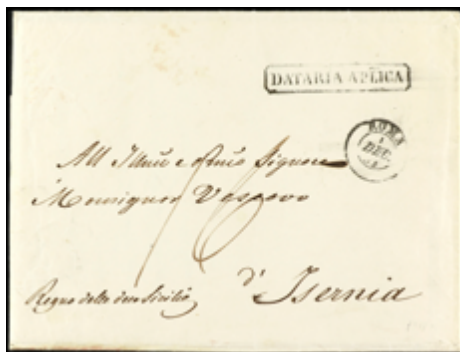 DATARIA APLICA
ROMA
DEC.
All Illmo e Rmo Signore
Monsignor Vescovo
d' Isernia
Regno delle due Sicilie